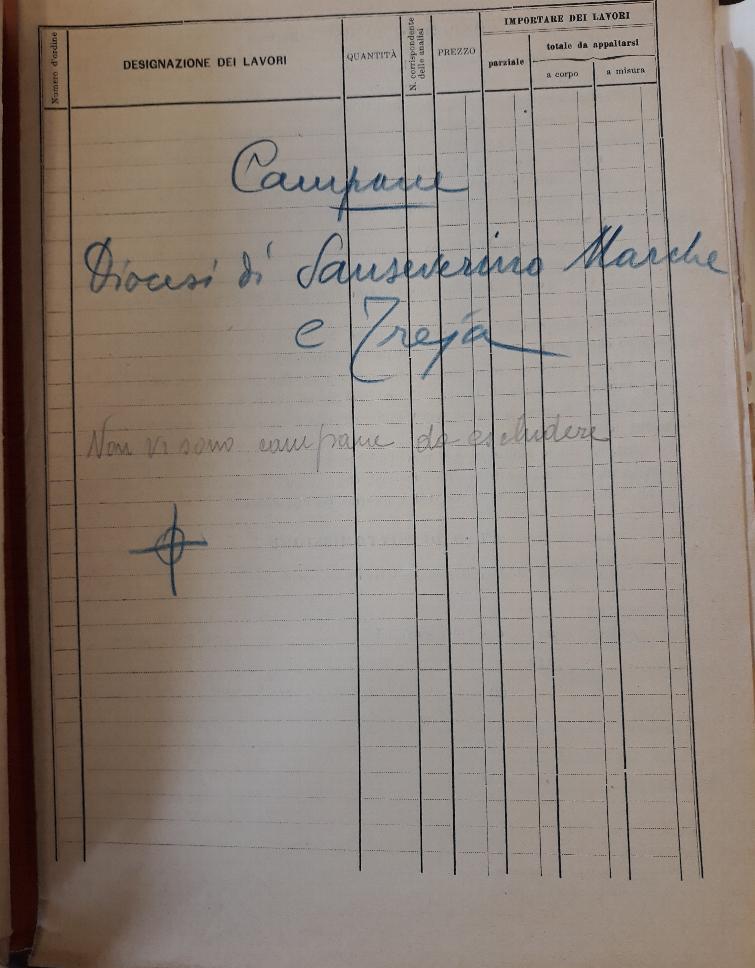 Numero d'ordine
DESIGNAZIONE DEI LAVORI
QUANTITÀ
N. corrispondente
delle analisi
PREZZO
IMPORTARE DEI LAVORI
parziale
totale da appaltarsi
a corpo
a misura
Campane
Diocesi di Sanseverino Marche
e Treja
Non vi sono campane da escludere